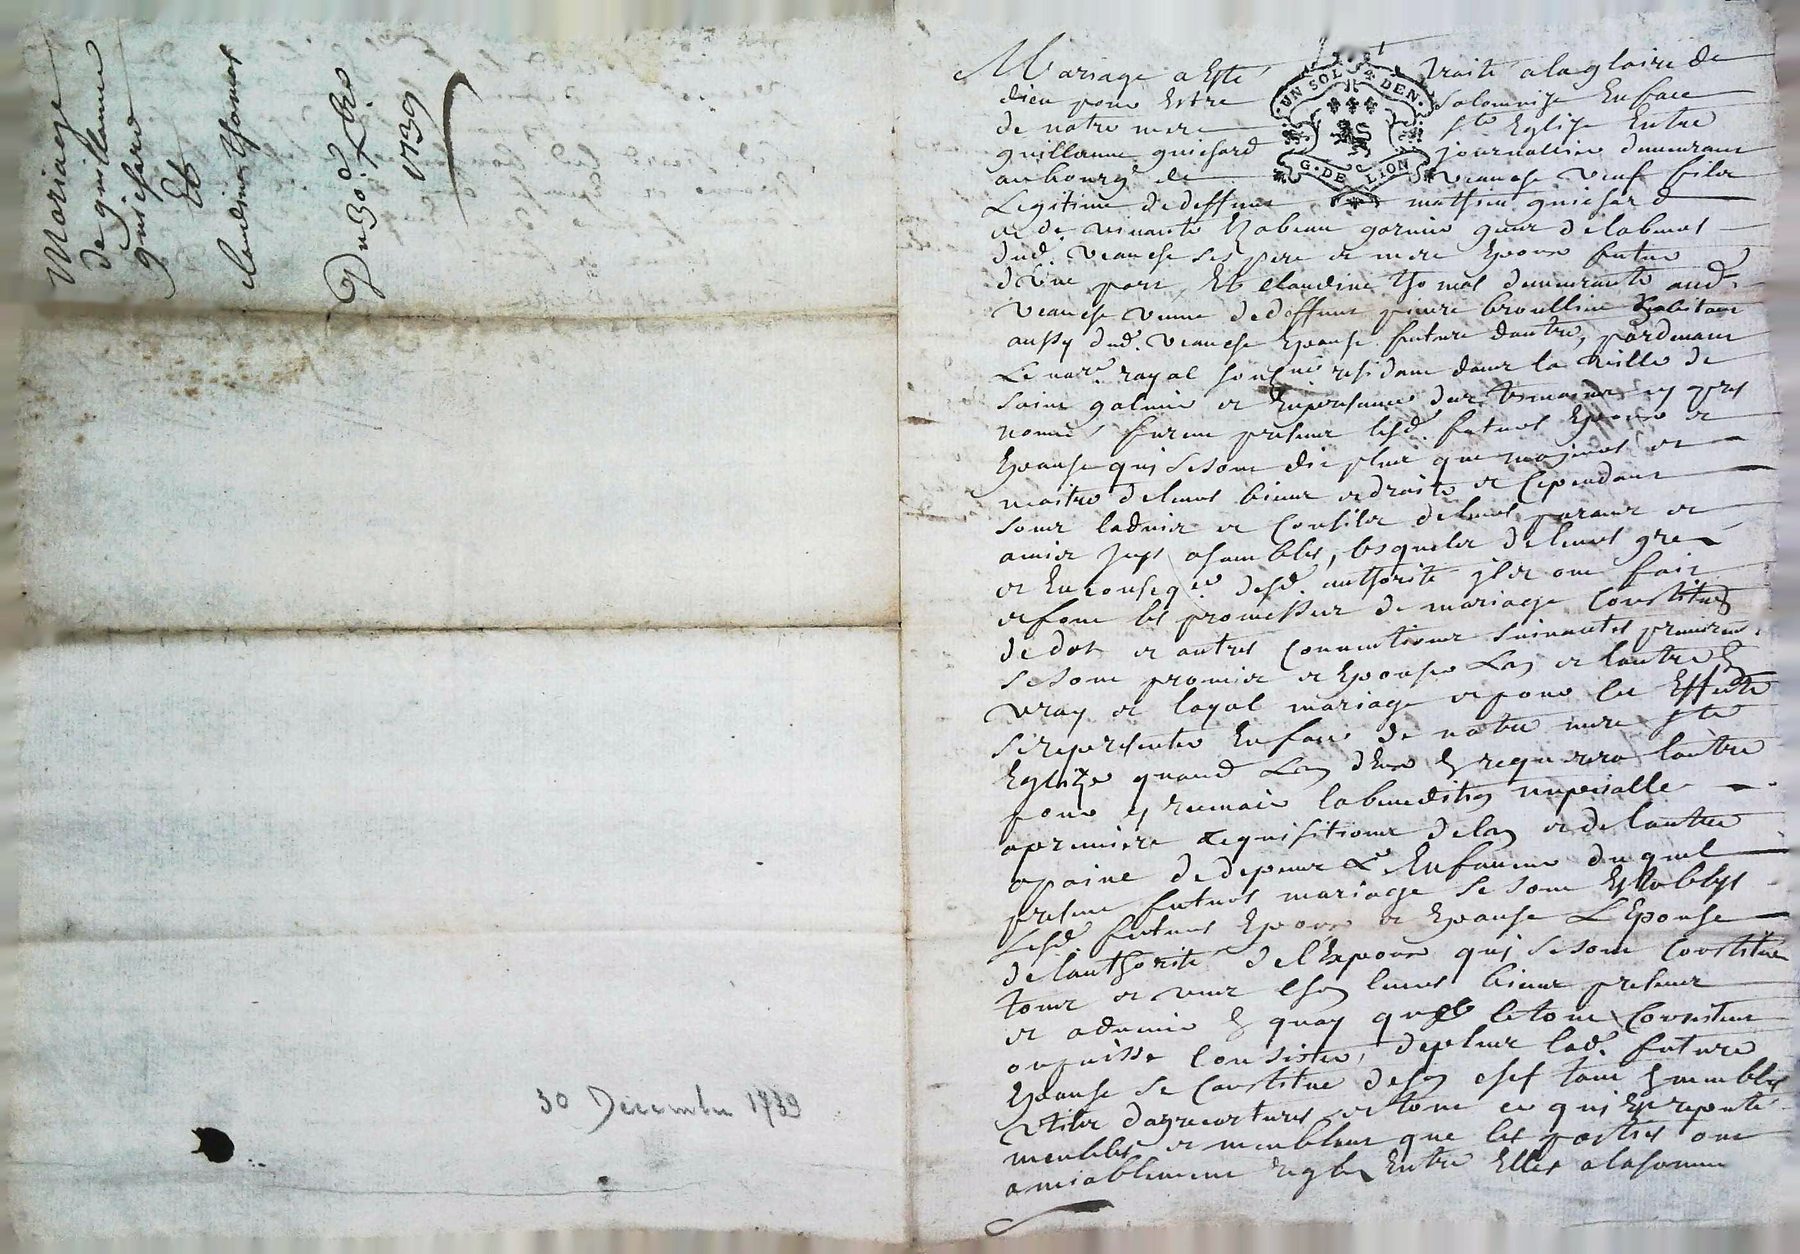 Mariage
de guillaume
guichard
Et
claudine thomas
Du 30.e Xbre
1739
30 Decembre 1739
UN SOL DEN.
G. DE LION
Mariage a Esté traité alagloire de
dieu pour Estre solemnizé Enface
de notre mere ste Eglize Entre
guillaume guichard journallier demeurant
au bourg de veauche veuf fils
Legitime de deffunt mathieu guichard
et de vivante Izabeau garnier
dud. veauche ses pere et mere Epoux futur
d'Une part, Et claudine thomas demeurante aud.
veauche veuve de deffunt pierre broulliere habitant
aussy dud. veauche Epouse future dautre, pardevant
Le nore. royal sousné residant dans la ville de
saint galmier et En presence des temoins cy apres
només furent present lesd. futurs Epoux et
Epouse qui se sont dit plus que majeurs et
maitre de leurs biens et droits et Cependant
sous ladvis et Conseils de leurs parans et
amies icy assemblés, lesquels de leurs gre
et En conseqce. desd. authorité ils ont fait
et font les promesses de mariage Constitue
de dot et autres Conventions suivantes premierem.
se sont promis et Epouser Lun et lautre En
vray et loyal mariage et pour les Effects
se representer En face de notre mere ste
Eglize quand Lun deux En requerera lautre
pour y recevoir la benediction nupsialle
a premiere requisitions de lun et de lautre
a paine de depens Et En faveur du quel
present futurs mariage se sont Establys
Lesd. futurs Epoux et Epouse L'Epouse
de lauthorité de l'Epoux qui se sont Constitués
tous et uns chun leurs biens presents
et advenir En quoy que le tout Consistent
ou puisse Consister, de plus lad. future
Epouse se Constitue de son chef tant En meubles
utils dagriculture et tout ce qui Est reputé
meubles et meublant que les parties ont
amiablement reglés Entre Elles a la somme